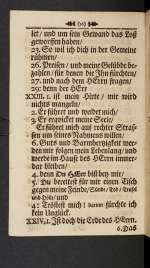 let/ und um sein Gewand das Loß
geworffen haben/
23. So wil ich dich in der Gemeine
rühmen/
26. Preisen/ und meine Gelübde be-
zahlen/ für denen die Jhn fürchten/
27. und nach dem HErrn fragen/
29: denn der HErr
XXIII. 1. ist mein Hirte/ mir wird
nichts mangeln/
2. Er führet und weidet mich/
3. Er erquicket meine Seele/
Er führet mich auf rechter Stras-
sen um seines Nahmens willen/
6. Guts und Barmhertzigkeit wer-
den mir folgen mein Lebenlang/ und
werde im Hause des HErrn immer-
dar bleiben/
4. denn Du HErr bist bey mir/
5. Du bereitest für mir einen Tisch
gegen meine Feinde/
und
4: Tröstest mich! fürchte ich
kein Unglück.
XXIV. 1. Ist doch die Erde des HErrn.
6. Das